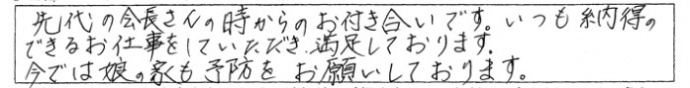 先代の会長さんの時からのお付き合いです。いつも納得の
できるお仕事をしていただき満足しております。
今では娘の家も予防をお願いしております。